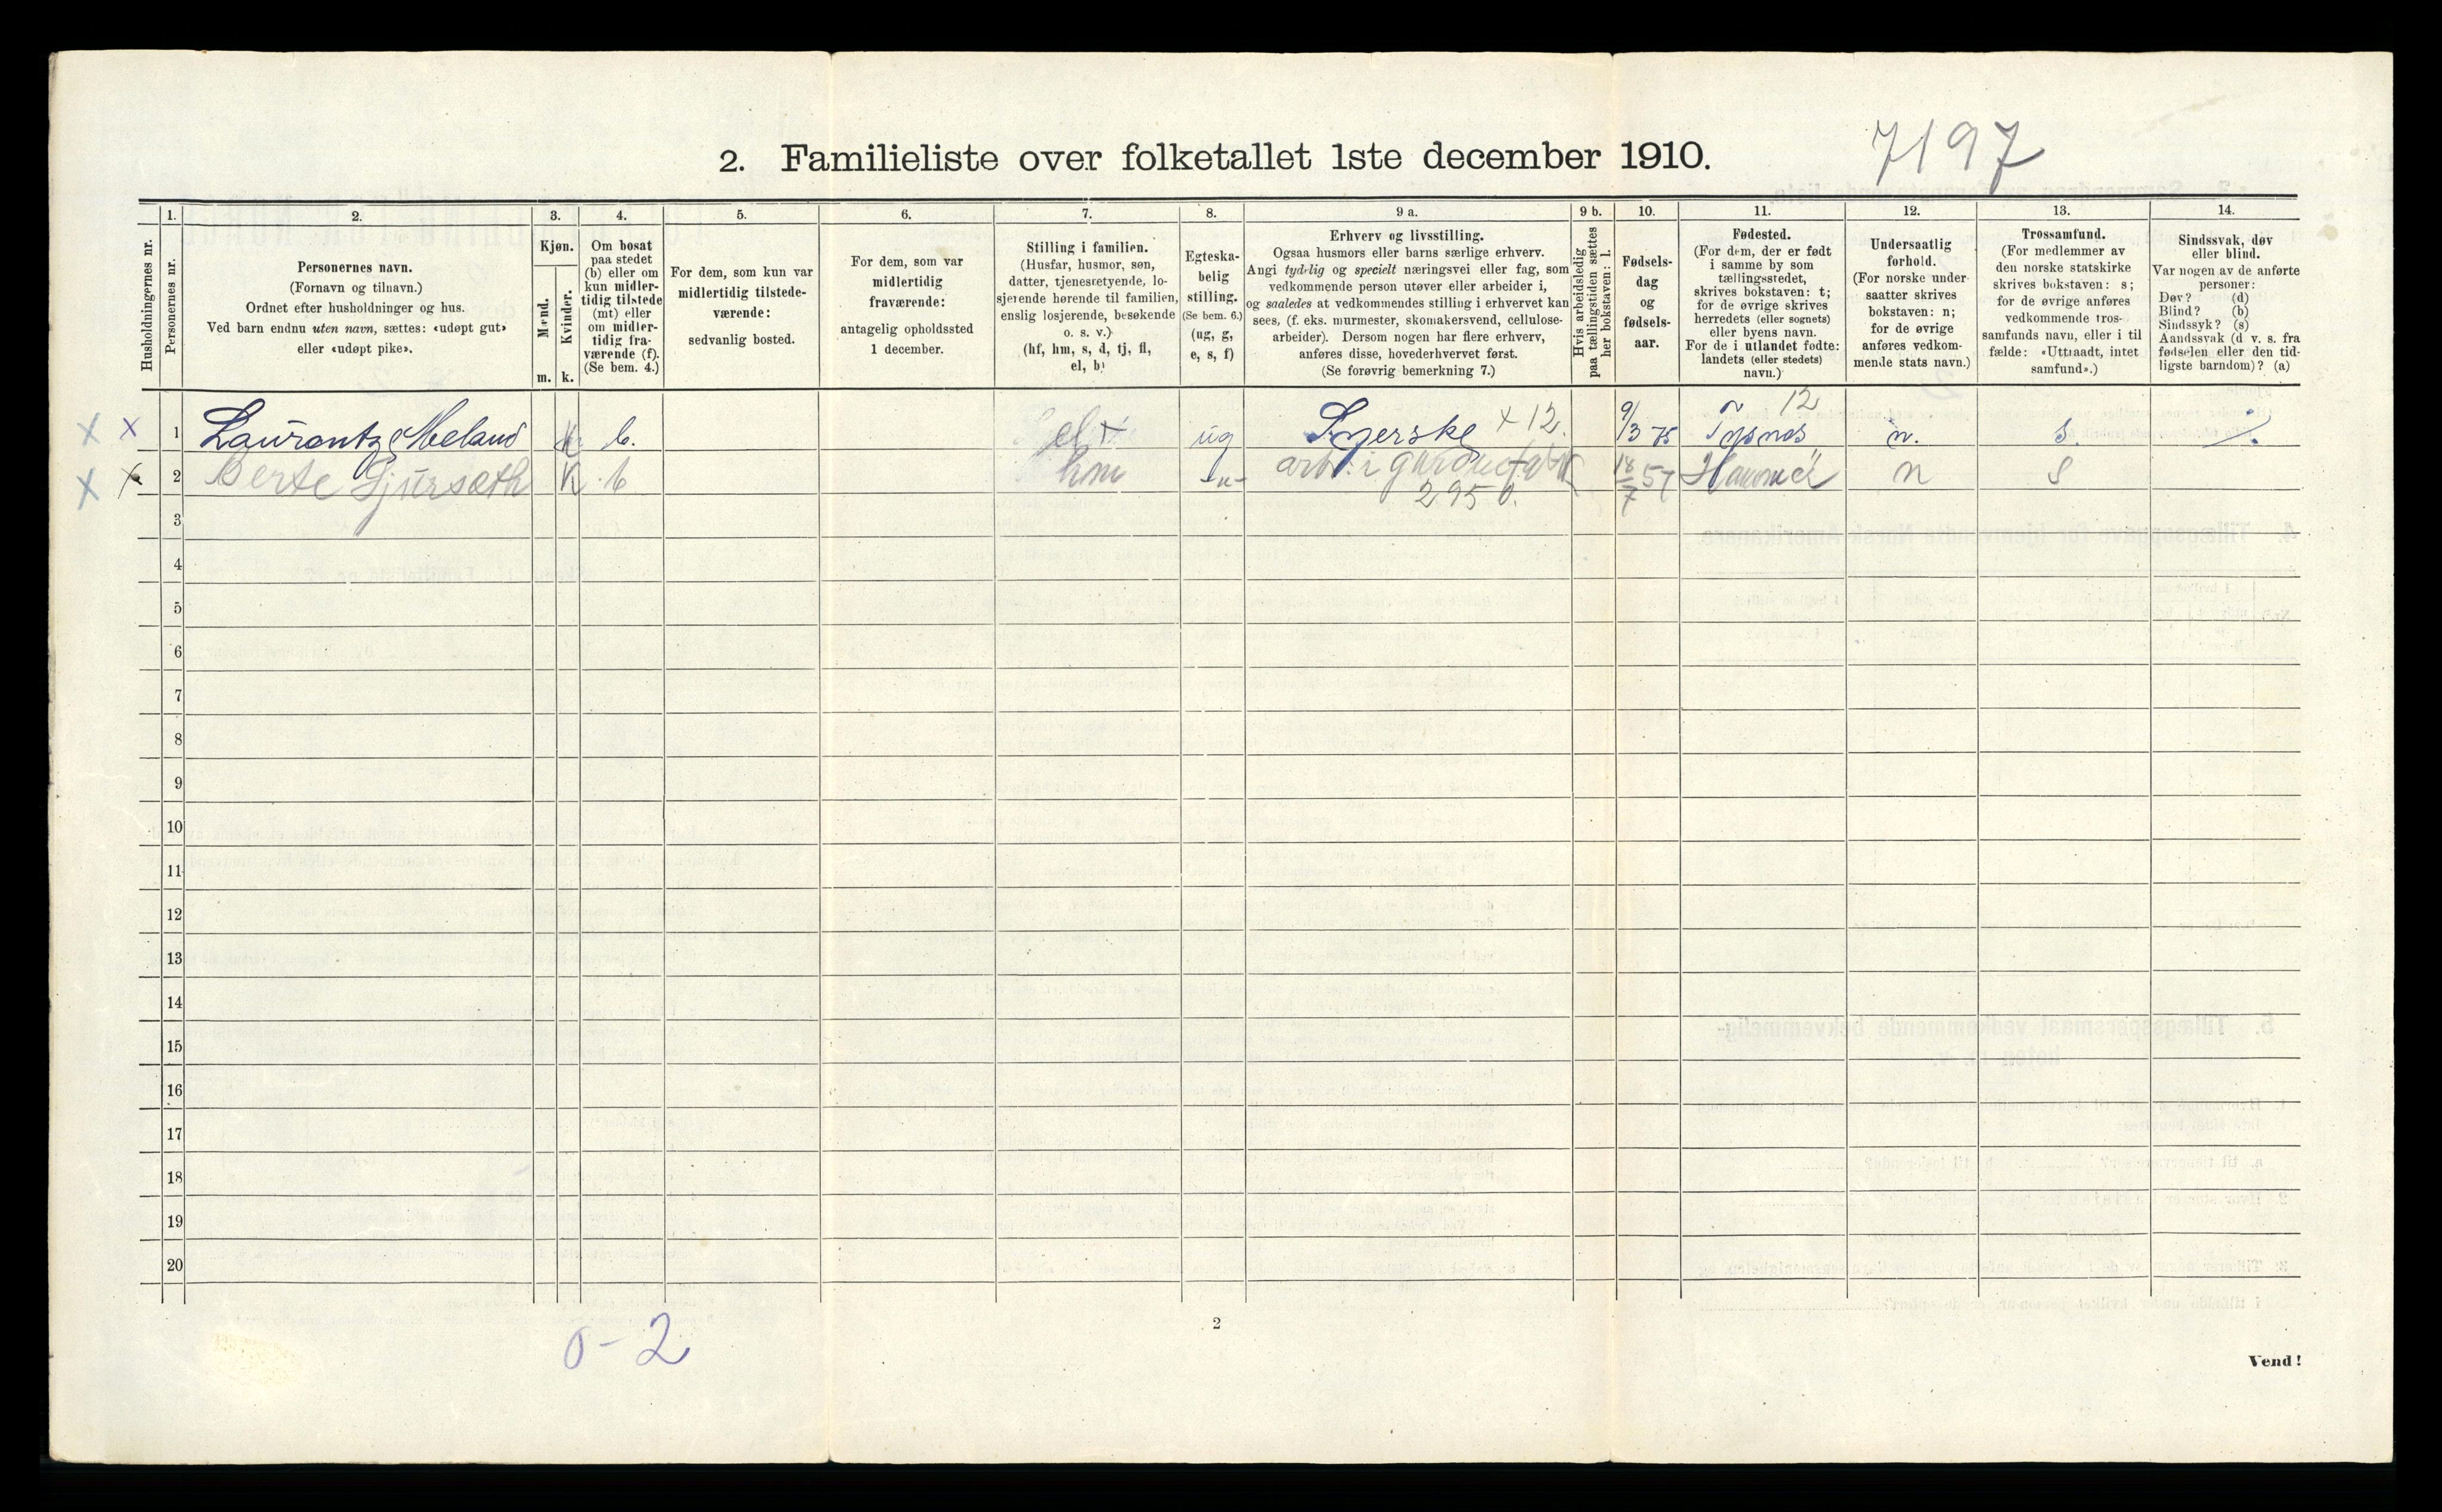 7197
2. Familieliste over folketallet 1ste december 1910.
Husholdningernes nr.
1. Personernes nr.
2. Personernes navn.
(Fornavn og tilnavn.)
Ordnet efter husholdninger og hus.
Ved barn endnu uten navn, sættes: «udøpt gut»
eller «udøpt pike».
3. Kjøn.
Mænd. m.
Kvinder. k.
4. Om bosat
paa stedet
(b) eller om
kun midler-
tidig tilstede
(mt) eller
om midler-
tidig fra-
værende (f).
(Se bem. 4.)
5. For dem, som kun var
midlertidig tilstede-
værende:
sedvanlig bosted.
6. For dem, som var
midlertidig
fraværende:
antagelig opholdssted
1 december.
7. Stilling i familien.
(Husfar, husmor, søn,
datter, tjenestetyende, lo-
sjerende hørende til familien,
enslig losjerende, besøkende
o. s. v.)
(hf, hm, s, d, tj, fl,
el, b)
8. Egteska-
belig
stilling.
(Se bem. 6.)
(ug, g,
e, s, f)
9 a. Erhverv og livsstilling.
Ogsaa husmors eller barns særlige erhverv.
Angi tydelig og specielt næringsvei eller fag, som
vedkommende person utøver eller arbeider i,
og saaledes at vedkommendes stilling i erhvervet kan
sees, (f. eks. murmester, skomakersvend, cellulose-
arbeider). Dersom nogen har flere erhverv,
anføres disse, hovederhvervet først.
(Se forøvrig bemerkning 7.)
9 b. Hvis arbeidsledig
paa tællingstiden sættes
her bokstaven: l.
10. Fødsels-
dag
og
fødsels-
aar.
11. Fødested.
(For dem, der er født
i samme by som
tællingsstedet,
skrives bokstaven: t;
for de øvrige skrives
herredets (eller sognets)
eller byens navn.
For de i utlandet fødte:
landets (eller stedets)
navn.)
12. Undersaatlig
forhold.
(For norske under-
saatter skrives
bokstaven: n;
for de øvrige
anføres vedkom-
mende stats navn.)
13. Trossamfund.
(For medlemmer av
den norske statskirke
skrives bokstaven: s;
for de øvrige anføres
vedkommende tros-
samfunds navn, eller i til
fælde: «Uttraadt, intet
samfund».)
14. Sindssvak, døv
eller blind.
Var nogen av de anførte
personer:
Døv? (d)
Blind? (b)
Sindssyk? (s)
Aandssvak (d. v. s. fra
fødselen eller den tid-
ligste barndom)? (a)
x x 1 Laurentze Meland k b. el + ug Syerske + 12. 9/3 75 Tysnes 12 n. s. ./.
x x 2 Berte Gjursæth K b hm -"- arb. i 18/7 57 Hammer n s
2950.
3
4
5
6
7
8
9
10
11
12
13
14
15
16
17
18
19
20
0 - 2
2
Vend!